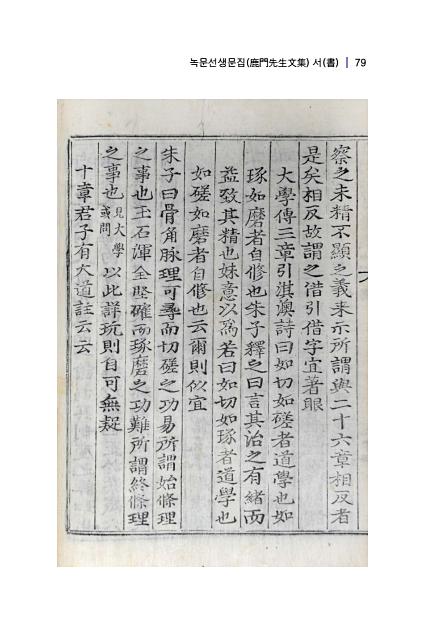 녹문선생문집(鹿門先生文集) 서(書) | 79
察之未精不顯之義来示所謂與二十六章相反者
是矣相反故謂之借引借字宜著眼
大學傳三章引淇澳詩曰如切如磋者道學也如
琢如磨者自修也朱子釋之曰言其治之有緒而
益致其精也妹意以為若曰如切如琢者道學也
如磋如磨者自修也云爾則似宜
朱子曰骨角脉理可尋而切磋之功易所謂始條理
之事也玉石渾全堅確而琢磨之功難所謂終條理
之事也見大學或問以此詳玩則自可無疑
十章君子有大道註云云